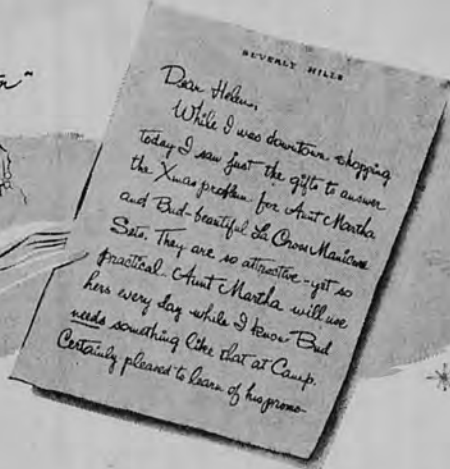 BEVERLY HILLS
Dear Helen,
While I was downtown shopping
today I saw just the gifts to answer
the Xmas problem for Aunt Martha
and Bud-beautiful La Cross Manicure
Sets. They are so attractive-yet so
practical-Aunt Martha will use
hers every day while I know Bud
needs something like that at Camp.
Certainly pleased to learn of his promo-